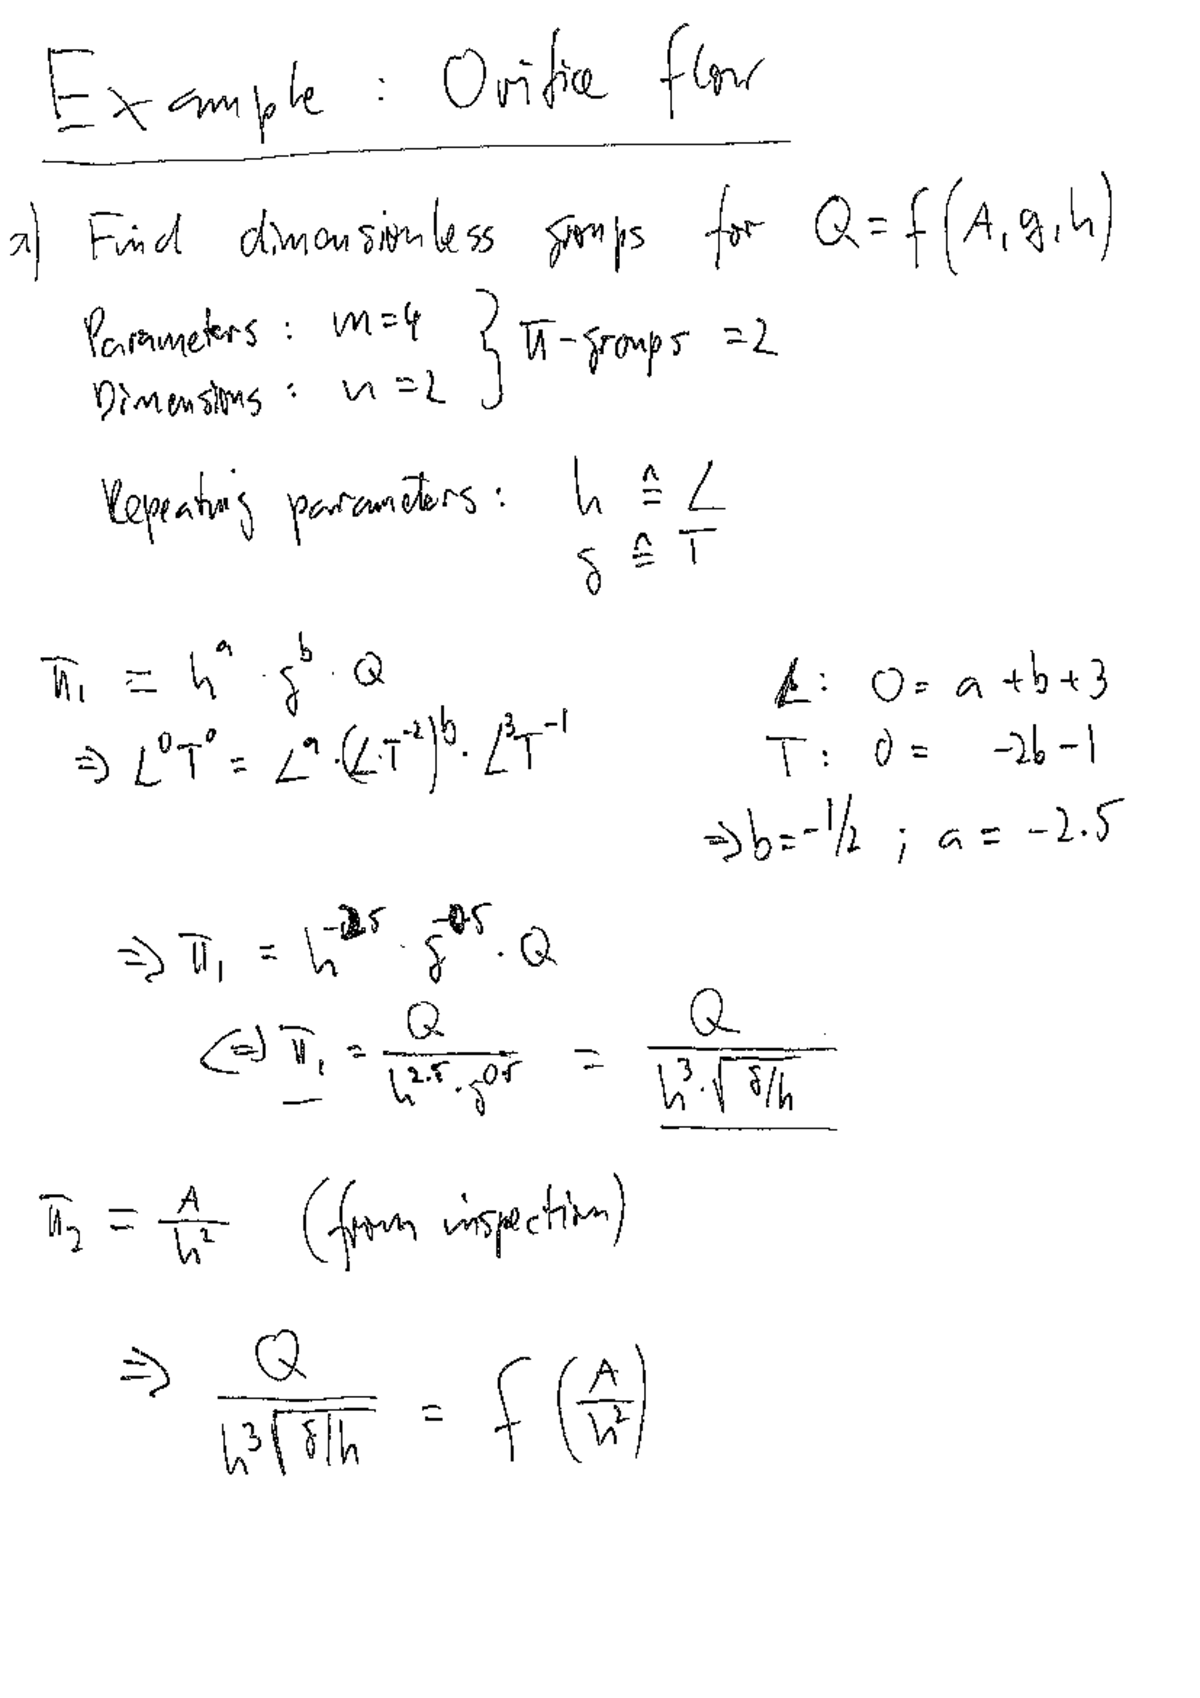 Example : Orifice flow
a) Find dimensionless groups for Q = f(A, g, h)
Parameters : m = 4 } π-groups = 2
Dimensions : n = 2
Repeating parameters : h ≙ L
g ≙ T
π₁ = hᵃ · gᵇ · Q
⇒ L⁰T⁰ = Lᵃ · (L·T⁻²)ᵇ · L³T⁻¹
L : 0 = a + b + 3
T : 0 = -2b - 1
⇒ b = -1/2 ; a = -2.5
⇒ π₁ = h^-2.5 · g^-0.5 · Q
⇔ π₁ = Q / (h^2.5 · g^0.5) = Q / (h³ · √(g/h))
π₂ = A/h² (from inspection)
⇒ Q / (h³ √(g/h)) = f(A/h²)